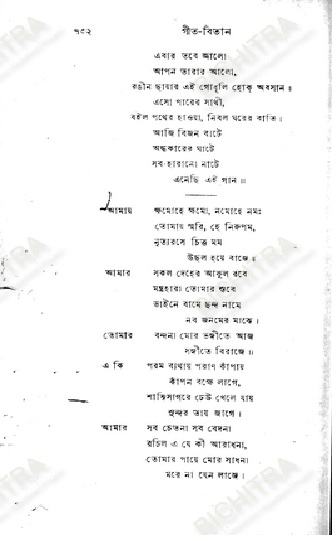 ৭৩২ গীত-বিতান
এবার তবে আলো
আপন তারার আলো,
রঙীন ছায়ার এই গোধূলি হোক্ অবসান ॥
এসো পারের সাথী,
বইল পথের হাওয়া, নিবল ঘরের বাতি।
আজি বিজন বাটে
অন্ধকারের ঘাটে
সব-হারানো নাটে
এনেছি এই গান ॥
আমায় ক্ষমোহে ক্ষমো, নমোহে নমঃ
তোমায় স্মরি, হে নিরুপম,
নৃত্যরসে চিত্ত মম
উছল হয়ে বাজে ॥
আমার সকল দেহের আকুল রবে
মন্ত্রহারা তোমার স্তবে
ডাইনে বামে ছন্দ নামে
নব জনমের মাঝে।
তোমার বন্দনা মোর ভঙ্গীতে আজ
সঙ্গীতে বিরাজে ॥
এ কি পরম ব্যথায় পরাণ কাঁপায়
কাঁপন বক্ষে লাগে,
শান্তিসাগরে ঢেউ খেলে যায়
সুন্দর তায় জাগে।
আমার সব চেতনা সব বেদনা
রচিল এ যে কী আরাধনা,
তোমার পায়ে মোর সাধনা
মরে না যেন লাজে।
BICHITRA